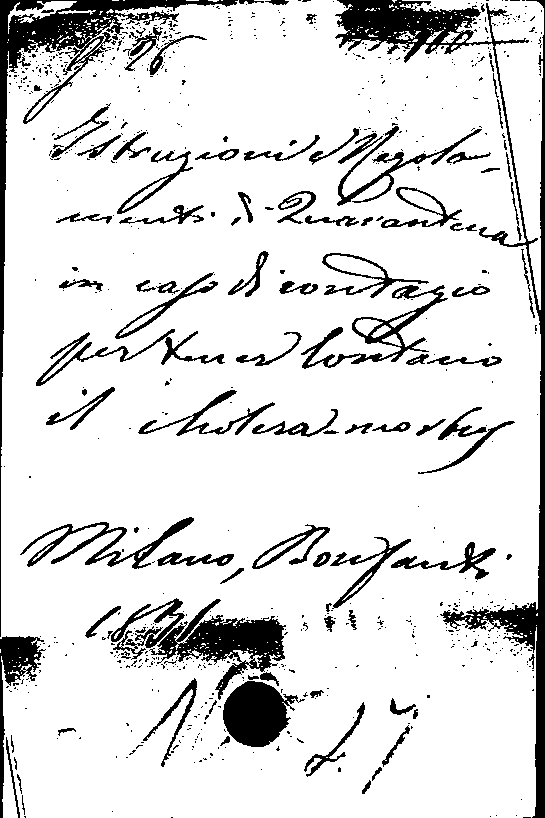 g 26
Istruzioni e Regola-
menti di Quarantena
in caso di contagio
per tener lontano
il cholera-morbus
Milano, Bonfanti
1831
N